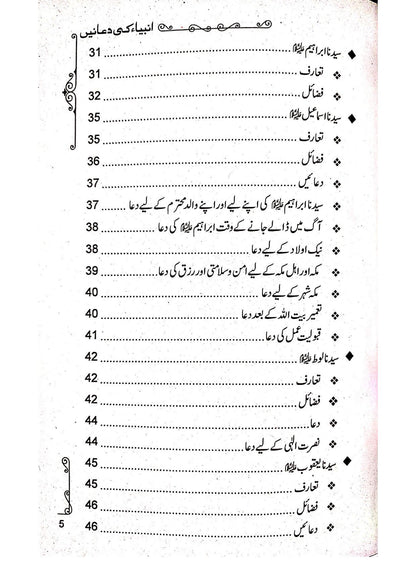 انبیاء کی دعائیں
◆ سیدنا ابراہیم علیہ السلام ........ 31
❖ تعارف ........ 31
❖ فضائل ........ 32
◆ سیدنا اسماعیل علیہ السلام ........ 35
❖ تعارف ........ 35
❖ فضائل ........ 36
❖ دعائیں ........ 37
❖ سیدنا ابراہیم علیہ السلام کی اپنے لیے اور اپنے والد محترم کے لیے دعا ........ 37
❖ آگ میں ڈالے جانے کے وقت ابراہیم علیہ السلام کی دعا ........ 38
❖ نیک اولاد کے لیے دعا ........ 38
❖ مکہ اور اہل مکہ کے لیے امن و سلامتی اور رزق کی دعا ........ 39
❖ مکہ شہر کے لیے دعا ........ 40
❖ تعمیر بیت اللہ کے بعد دعا ........ 40
❖ قبولیت عمل کی دعا ........ 41
◆ سیدنا لوط علیہ السلام ........ 42
❖ تعارف ........ 42
❖ فضائل ........ 42
❖ دعا ........ 44
❖ نصرت الٰہی کے لیے دعا ........ 44
◆ سیدنا یعقوب علیہ السلام ........ 45
❖ تعارف ........ 45
❖ فضائل ........ 46
❖ دعائیں ........ 46
5